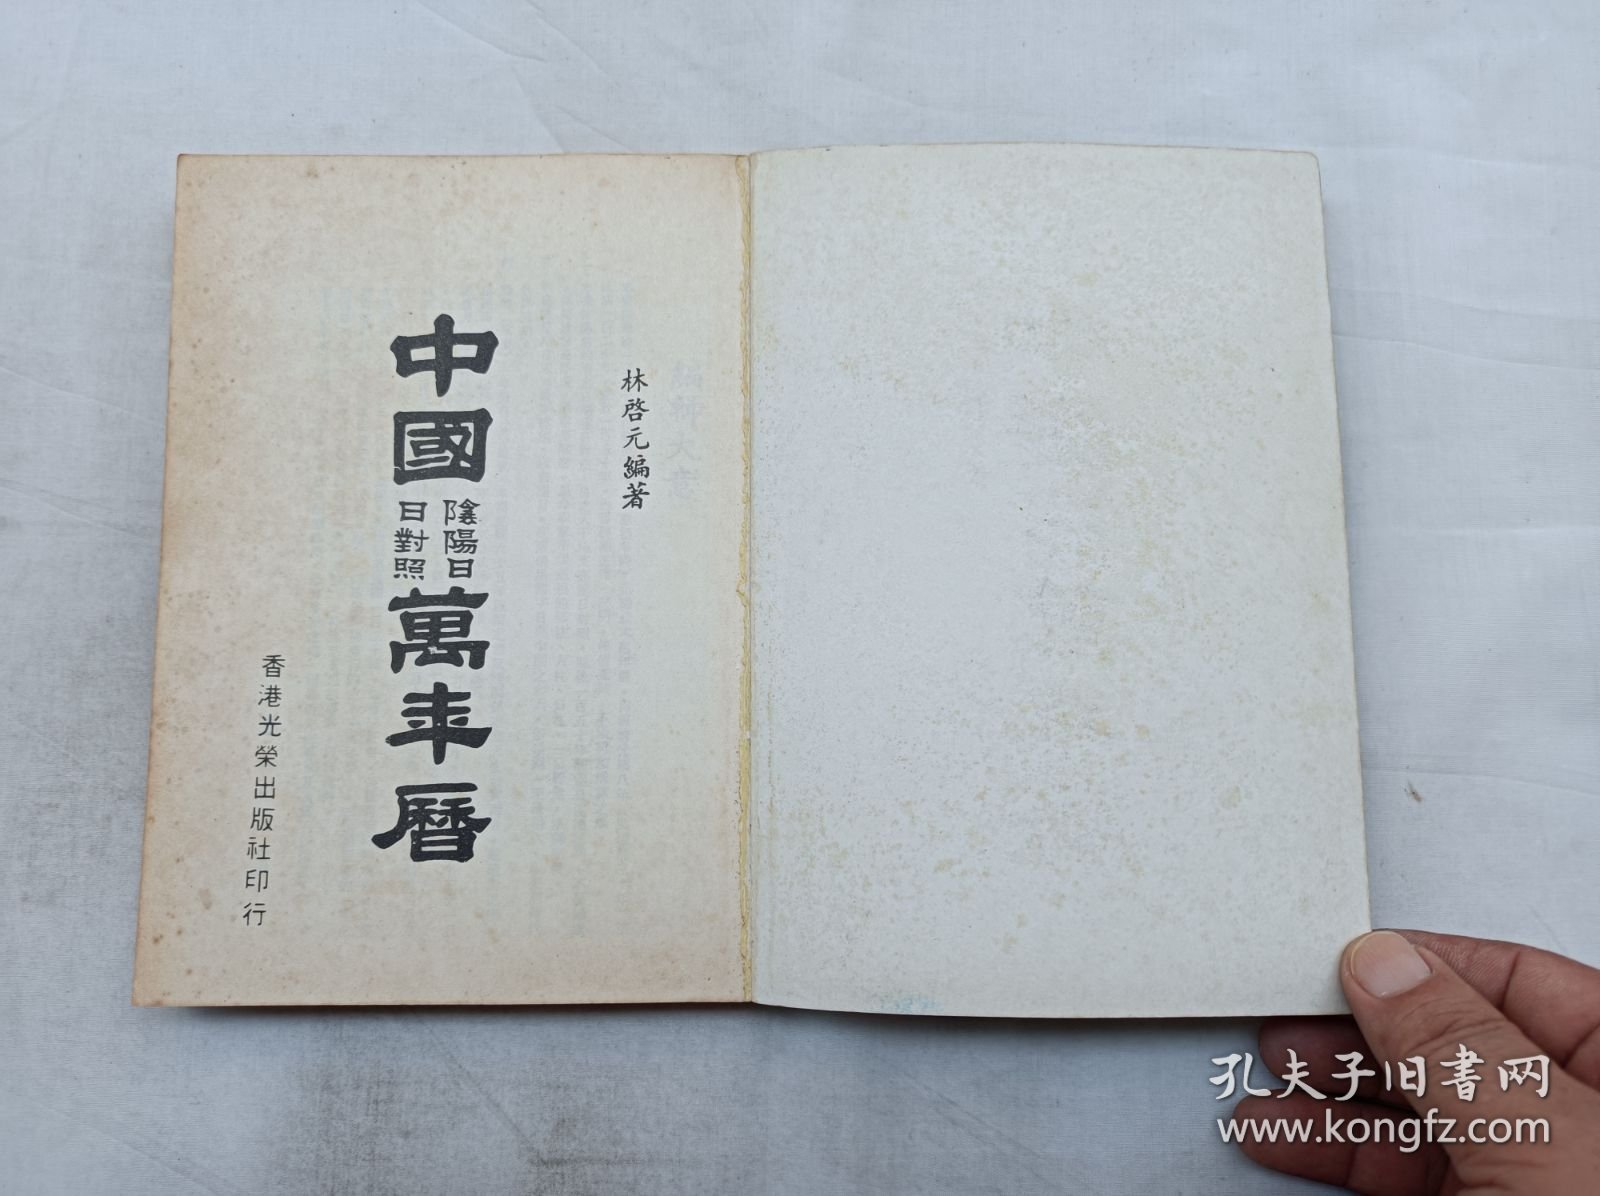 林啓元編著
中國陰陽日日對照萬年曆
香港光榮出版社印行
孔夫子旧书网
www.kongfz.com